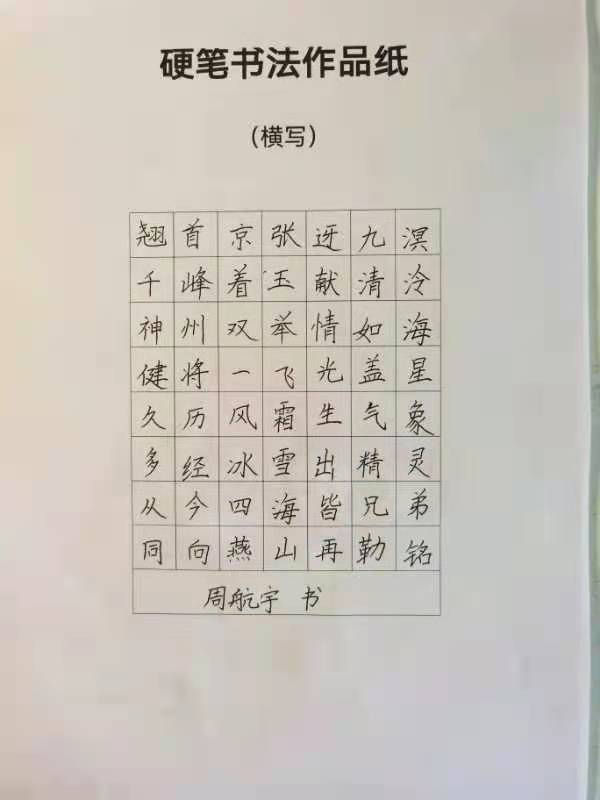 硬笔书法作品纸
（横写）
翘首京张迓九溟
千峰着玉献清泠
神州双举情如海
健将一飞光盖星
久历风霜生气象
多经冰雪出精灵
从今四海皆兄弟
同向燕山再勒铭
周航宇 书